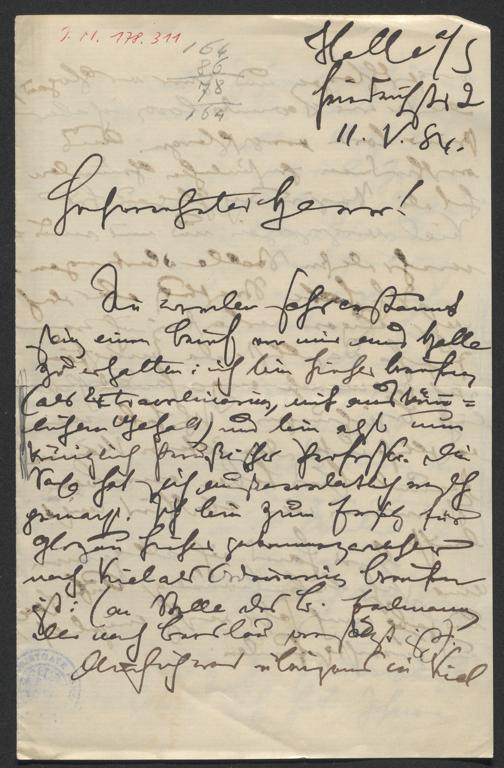 I. N. 178.311
164
86
78
164
Halle a/S
Friedrichstr 2
11. V. 84.
Hochverehrter Herr!
Sie werden sehr erstaunt
sein einen Brief von mir aus Halle
zu erhalten: ich bin hierher berufen
(als Extraordinarius, mit
Gehalt) und bin also nun
königlich preußischer Professor. Die
Sache hat sich rasch
gemacht. Ich bin zum Ersatz für
Glogau hierher gekommen, welcher
nach Kiel als Ordinarius berufen
ist: (an Stelle des B. Erdmann
der nach Breslau versetzt ist).
übrigens in Kiel